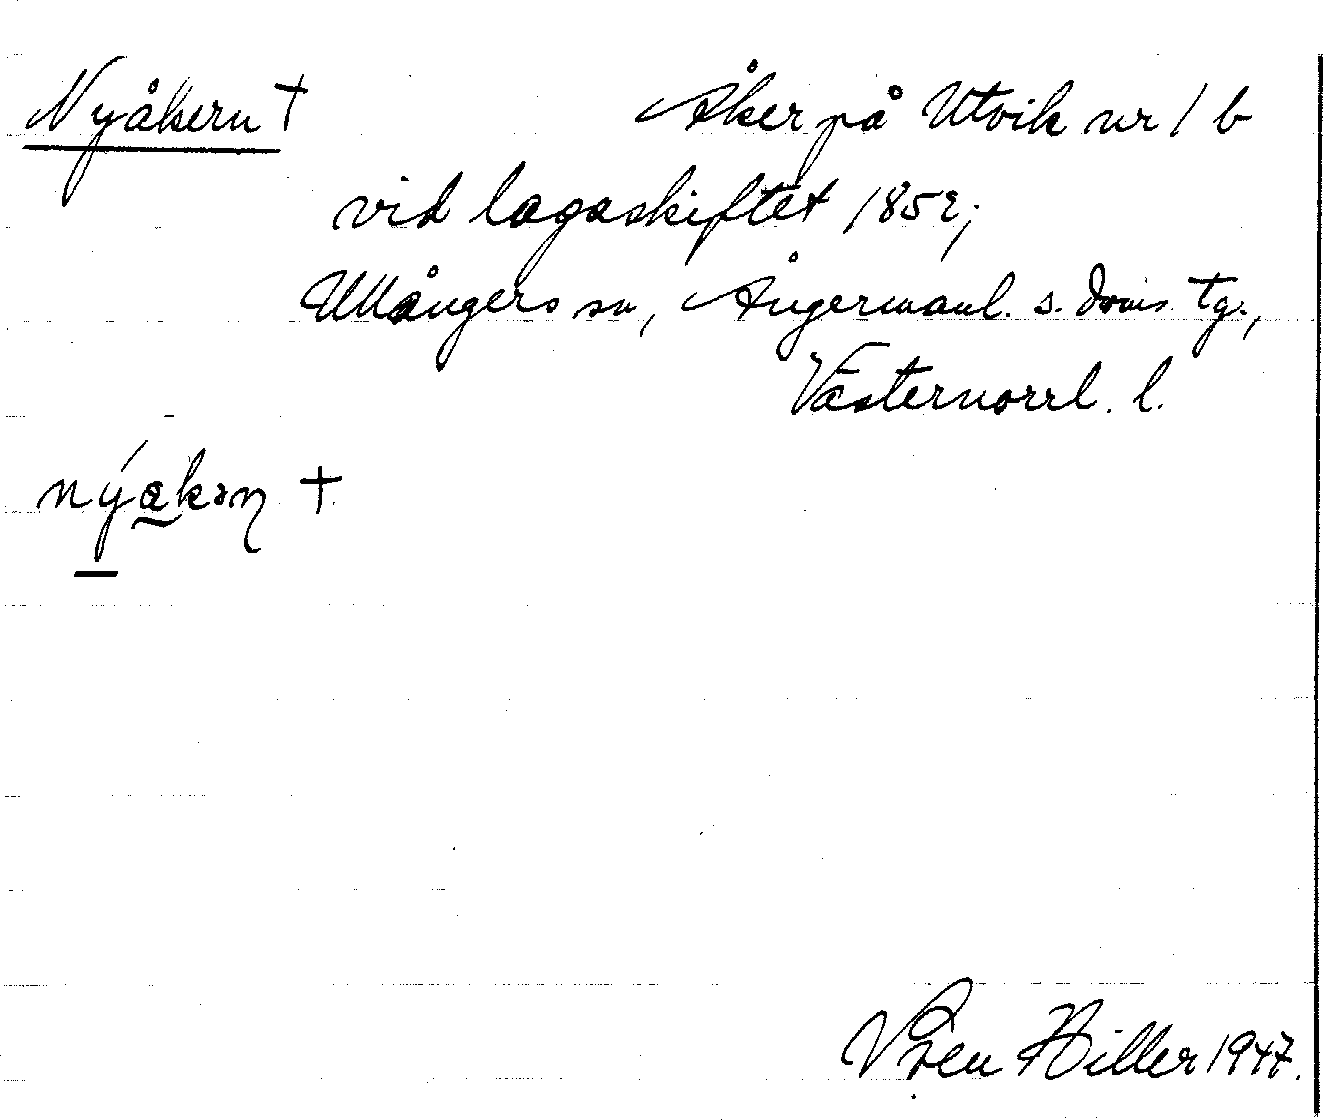 Nyåkern † Åker på Utvik nr 1 b
vid lagaskiftet 1852;
Ullångers sn, Ångermanl. s. doms. tg.,
Västernorrl. l.
nýa̰kəɳ †
Hiller 1947.